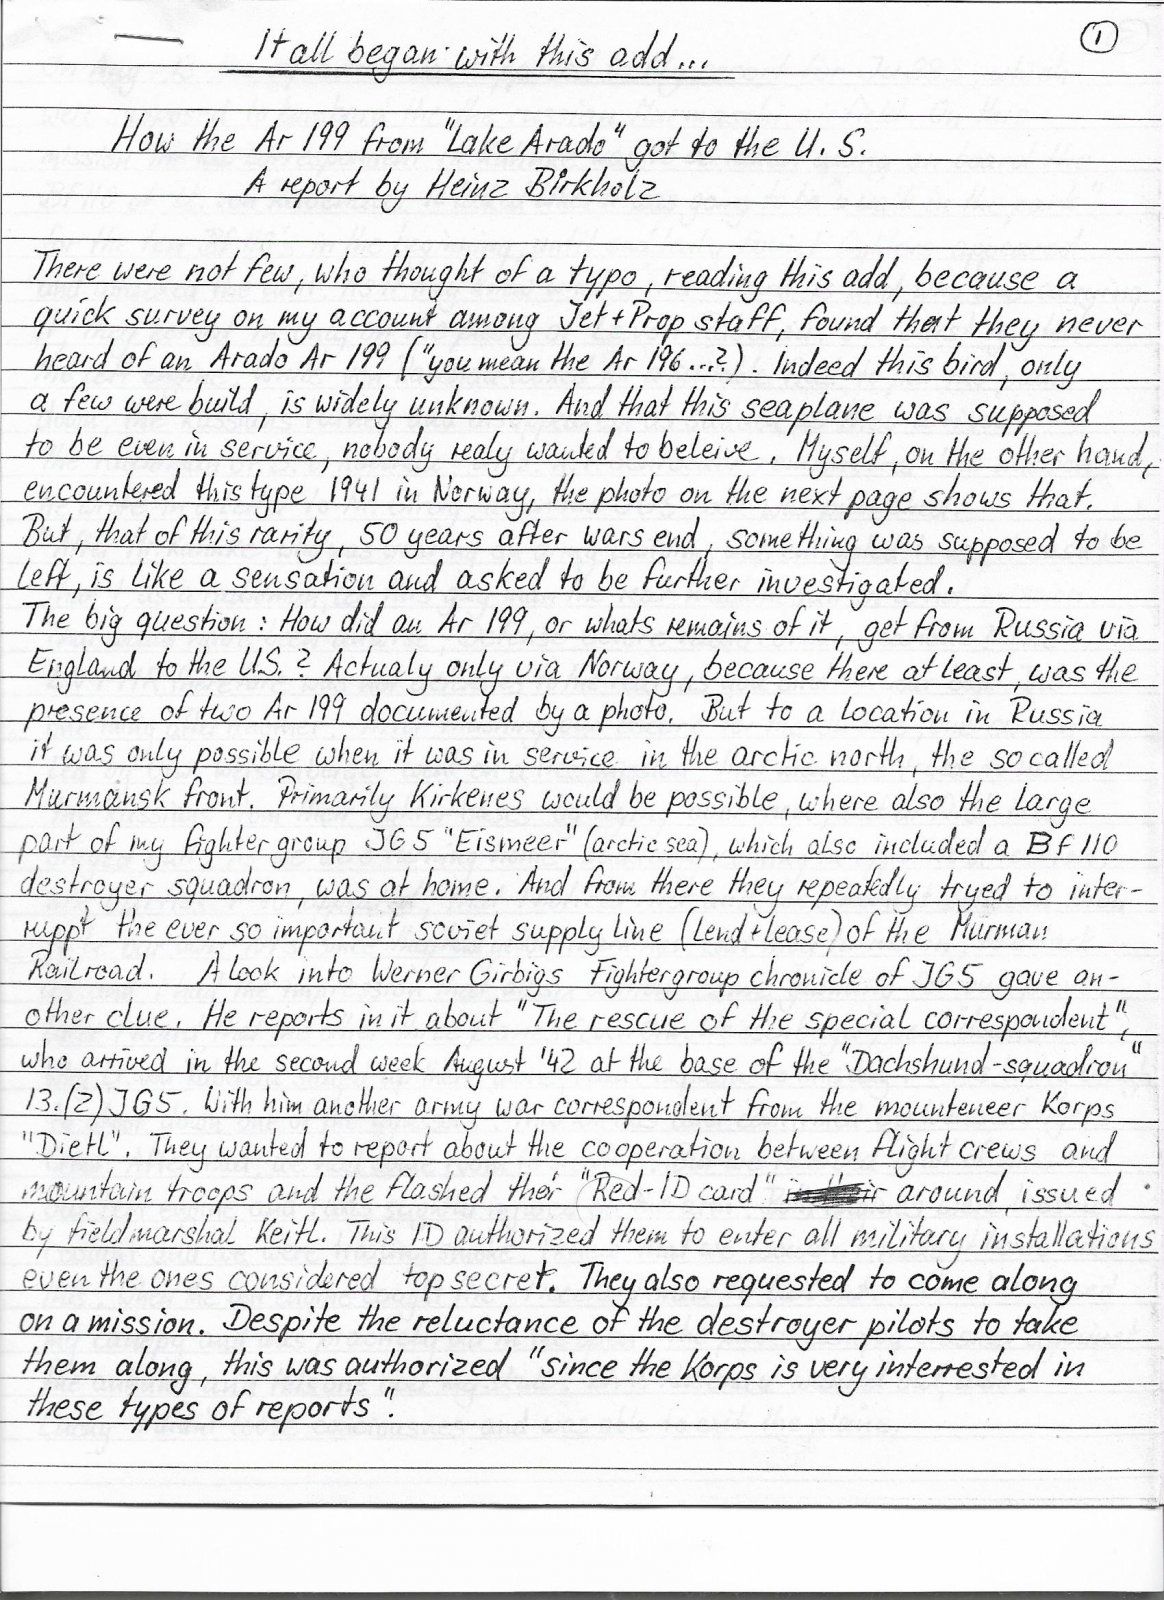 1
It all began with this add...
How the Ar 199 from "Lake Arado" got to the U.S.
A report by Heinz Birkholz
There were not few, who thought of a typo, reading this add, because a
quick survey on my account among Jet+Prop staff, found that they never
heard of an Arado Ar 199 ("you mean the Ar 196...?). Indeed this bird, only
a few were build, is widely unknown. And that this seaplane was supposed
to be even in service, nobody realy wanted to beleive. Myself, on the other hand,
encountered this type 1941 in Norway, the photo on the next page shows that.
But, that of this rarity, 50 years after wars end, something was supposed to be
left, is like a sensation and asked to be further investigated.
The big question: How did an Ar 199, or whats remains of it, get from Russia via
England to the U.S.? Actualy only via Norway, because there at least, was the
presence of two Ar 199 documented by a photo. But to a location in Russia
it was only possible when it was in service in the arctic north, the so called
Murmansk front. Primarily Kirkenes would be possible, where also the large
part of my fighter group JG5 "Eismeer" (arctic sea), which also included a Bf 110
destroyer squadron, was at home. And from there they repeatedly tryed to inter-
ruppt the ever so important soviet supply line (lend+lease) of the Murman
Railroad. A look into Werner Girbigs Fightergroup chronicle of JG5 gave an-
other clue. He reports in it about "The rescue of the special correspondent",
who arrived in the second week August '42 at the base of the "Dachshund-squadron"
13.(Z) JG5. With him another army war correspondent from the mounteneer Korps
"Dietl". They wanted to report about the cooperation between flight crews and
mountain troops and the flashed their "Red-ID card" around, issued
by fieldmarshal Keitl. This ID authorized them to enter all military installations
even the ones considered top secret. They also requested to come along
on a mission. Despite the reluctance of the destroyer pilots to take
them along, this was authorized "since the Korps is very interrested in
these types of reports".